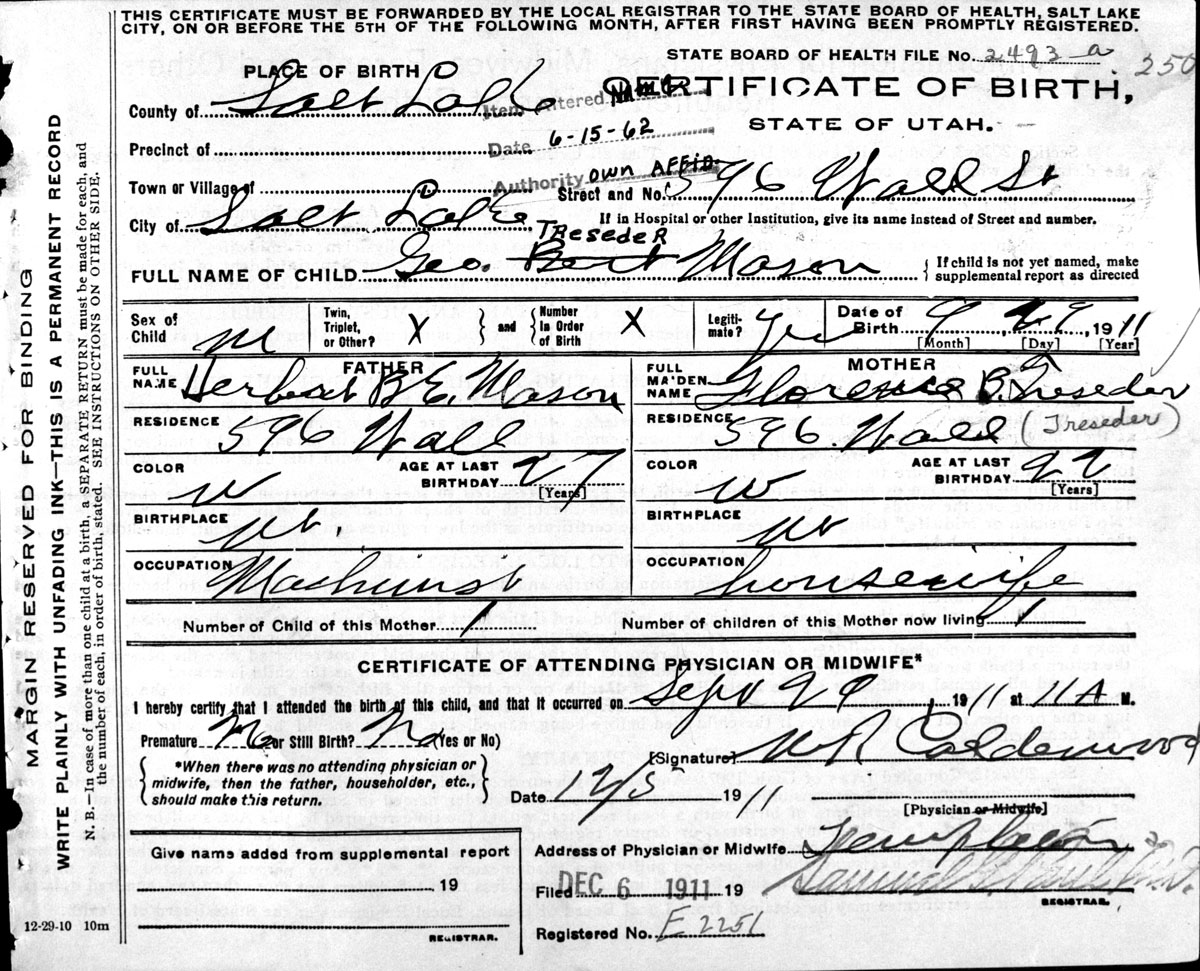 THIS CERTIFICATE MUST BE FORWARDED BY THE LOCAL REGISTRAR TO THE STATE BOARD OF HEALTH, SALT LAKE
CITY, ON OR BEFORE THE 5TH OF THE FOLLOWING MONTH, AFTER FIRST HAVING BEEN PROMPTLY REGISTERED.
STATE BOARD OF HEALTH FILE No. 2493-a
250
PLACE OF BIRTH
CERTIFICATE OF BIRTH,
County of Salt Lake
Item Entered NAME
STATE OF UTAH.
Precinct of
Date 6-15-62
Town or Village of
Authority OWN AFFID.
Street and No. 596 Wall St
City of Salt Lake
If in Hospital or other Institution, give its name instead of Street and number.
TRESEDER
FULL NAME OF CHILD Geo. Bert Mason
{ If child is not yet named, make
supplemental report as directed
Sex of Child M
Twin, Triplet, or Other? X
and
Number In Order of Birth X
Legiti-mate? Yes
Date of Birth 9, 29, 1911
[Month] [Day] [Year]
FATHER
FULL NAME Herbert B E. Mason
RESIDENCE 596 Wall
COLOR W
AGE AT LAST BIRTHDAY 27
[Years]
BIRTHPLACE Ut.
OCCUPATION Machinist
MOTHER
FULL MAIDEN NAME Florence B. Treseder
RESIDENCE 596 Wall (Treseder)
COLOR W
AGE AT LAST BIRTHDAY 22
[Years]
BIRTHPLACE Ut
OCCUPATION housewife
Number of Child of this Mother 1
Number of children of this Mother now living 1
CERTIFICATE OF ATTENDING PHYSICIAN OR MIDWIFE*
I hereby certify that I attended the birth of this child, and that it occurred on Sept 29, 1911 at 11 A M.
Premature No or Still Birth? No (Yes or No)
[Signature] W R Calderwood
{ *When there was no attending physician or
midwife, then the father, householder, etc.,
should make this return. }
Date 12/5 1911
[Physician or Midwife]
Give name added from supplemental report
19
REGISTRAR.
Address of Physician or Midwife Templeton
Filed DEC 6 1911 19
REGISTRAR.
Registered No. E 2251
12-29-10 10m
MARGIN RESERVED FOR BINDING
WRITE PLAINLY WITH UNFADING INK—THIS IS A PERMANENT RECORD
N. B.—In case of more than one child at a birth, a SEPARATE RETURN must be made for each, and
the number of each, in order of birth, stated. SEE INSTRUCTIONS ON OTHER SIDE.